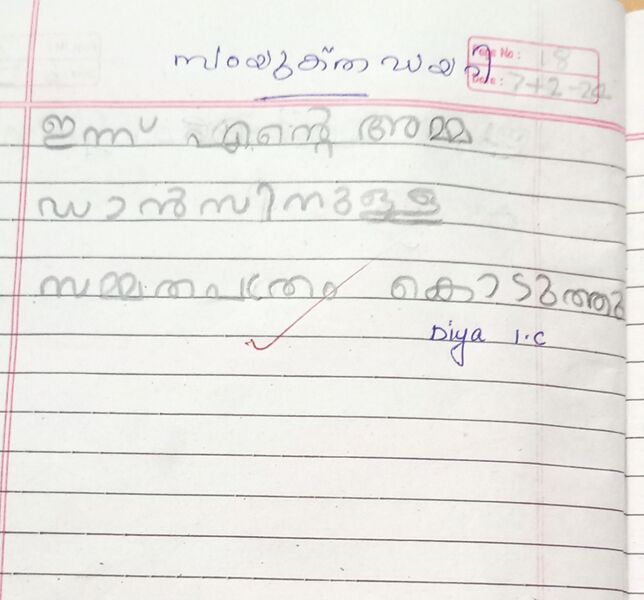 Page No: 18
സംയുക്ത ഡയറി
Date: 7+2-24
ഇന്ന് എന്റെ അമ്മ
ഡാൻസിനുള്ള
സമ്മതപത്രം കൊടുത്തു
Diya 1.C